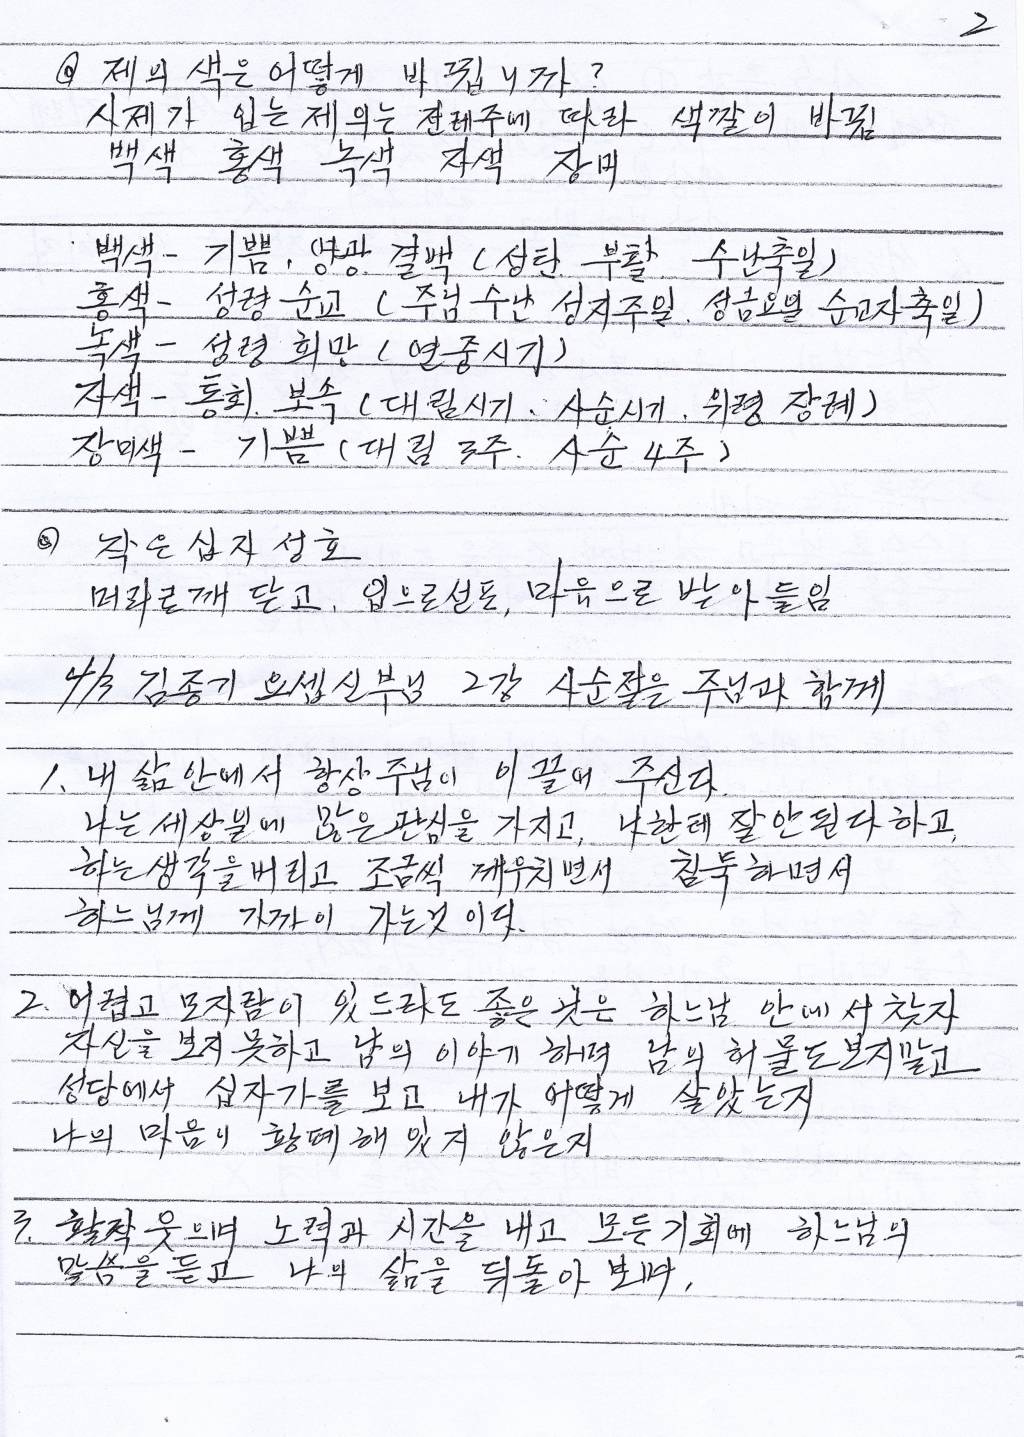 2
@ 제의 색은 어떻게 바뀝니까?
사제가 입는 제의는 전례주에 따라 색깔이 바뀜
백색 홍색 녹색 자색 장미
백색 - 기쁨, 영광. 결백 (성탄. 부활. 수난축일)
홍색 - 성령 순교 (주님수난 성지주일. 성금요일 순교자축일)
녹색 - 성령 희망 (연중시기)
자색 - 통회. 보속 (대림시기. 사순시기. 위령 장례)
장미색 - 기쁨 (대림 3주. 사순 4주)
@ 작은 십자성호
머리로깨 닫고, 입으로선포, 마음으로 받아들임
4/3 김종기 요셉신부님 2강 사순절은 주님과 함께
1. 내 삶 안에서 항상주님이 이끌어 주신다.
나는 세상일에 많은관심을 가지고, 나한테 잘안된다하고,
하는생각을버리고 조금씩 깨우치면서 침묵하면서
하느님께 가까이 가는것이다.
2. 어렵고 모자람이 있드라도 좋은 것은 하느님 안에서 찾자
자신을 보지못하고 남의 이야기 하며 남의 허물도보지말고
성당에서 십자가를 보고 내가 어떻게 살았는지
나의 마음이 황폐해있지 않은지
3. 활짝웃으며 노력과 시간을 내고 모든기회에 하느님의
말씀을듣고 나의 삶을 뒤돌아 보며,